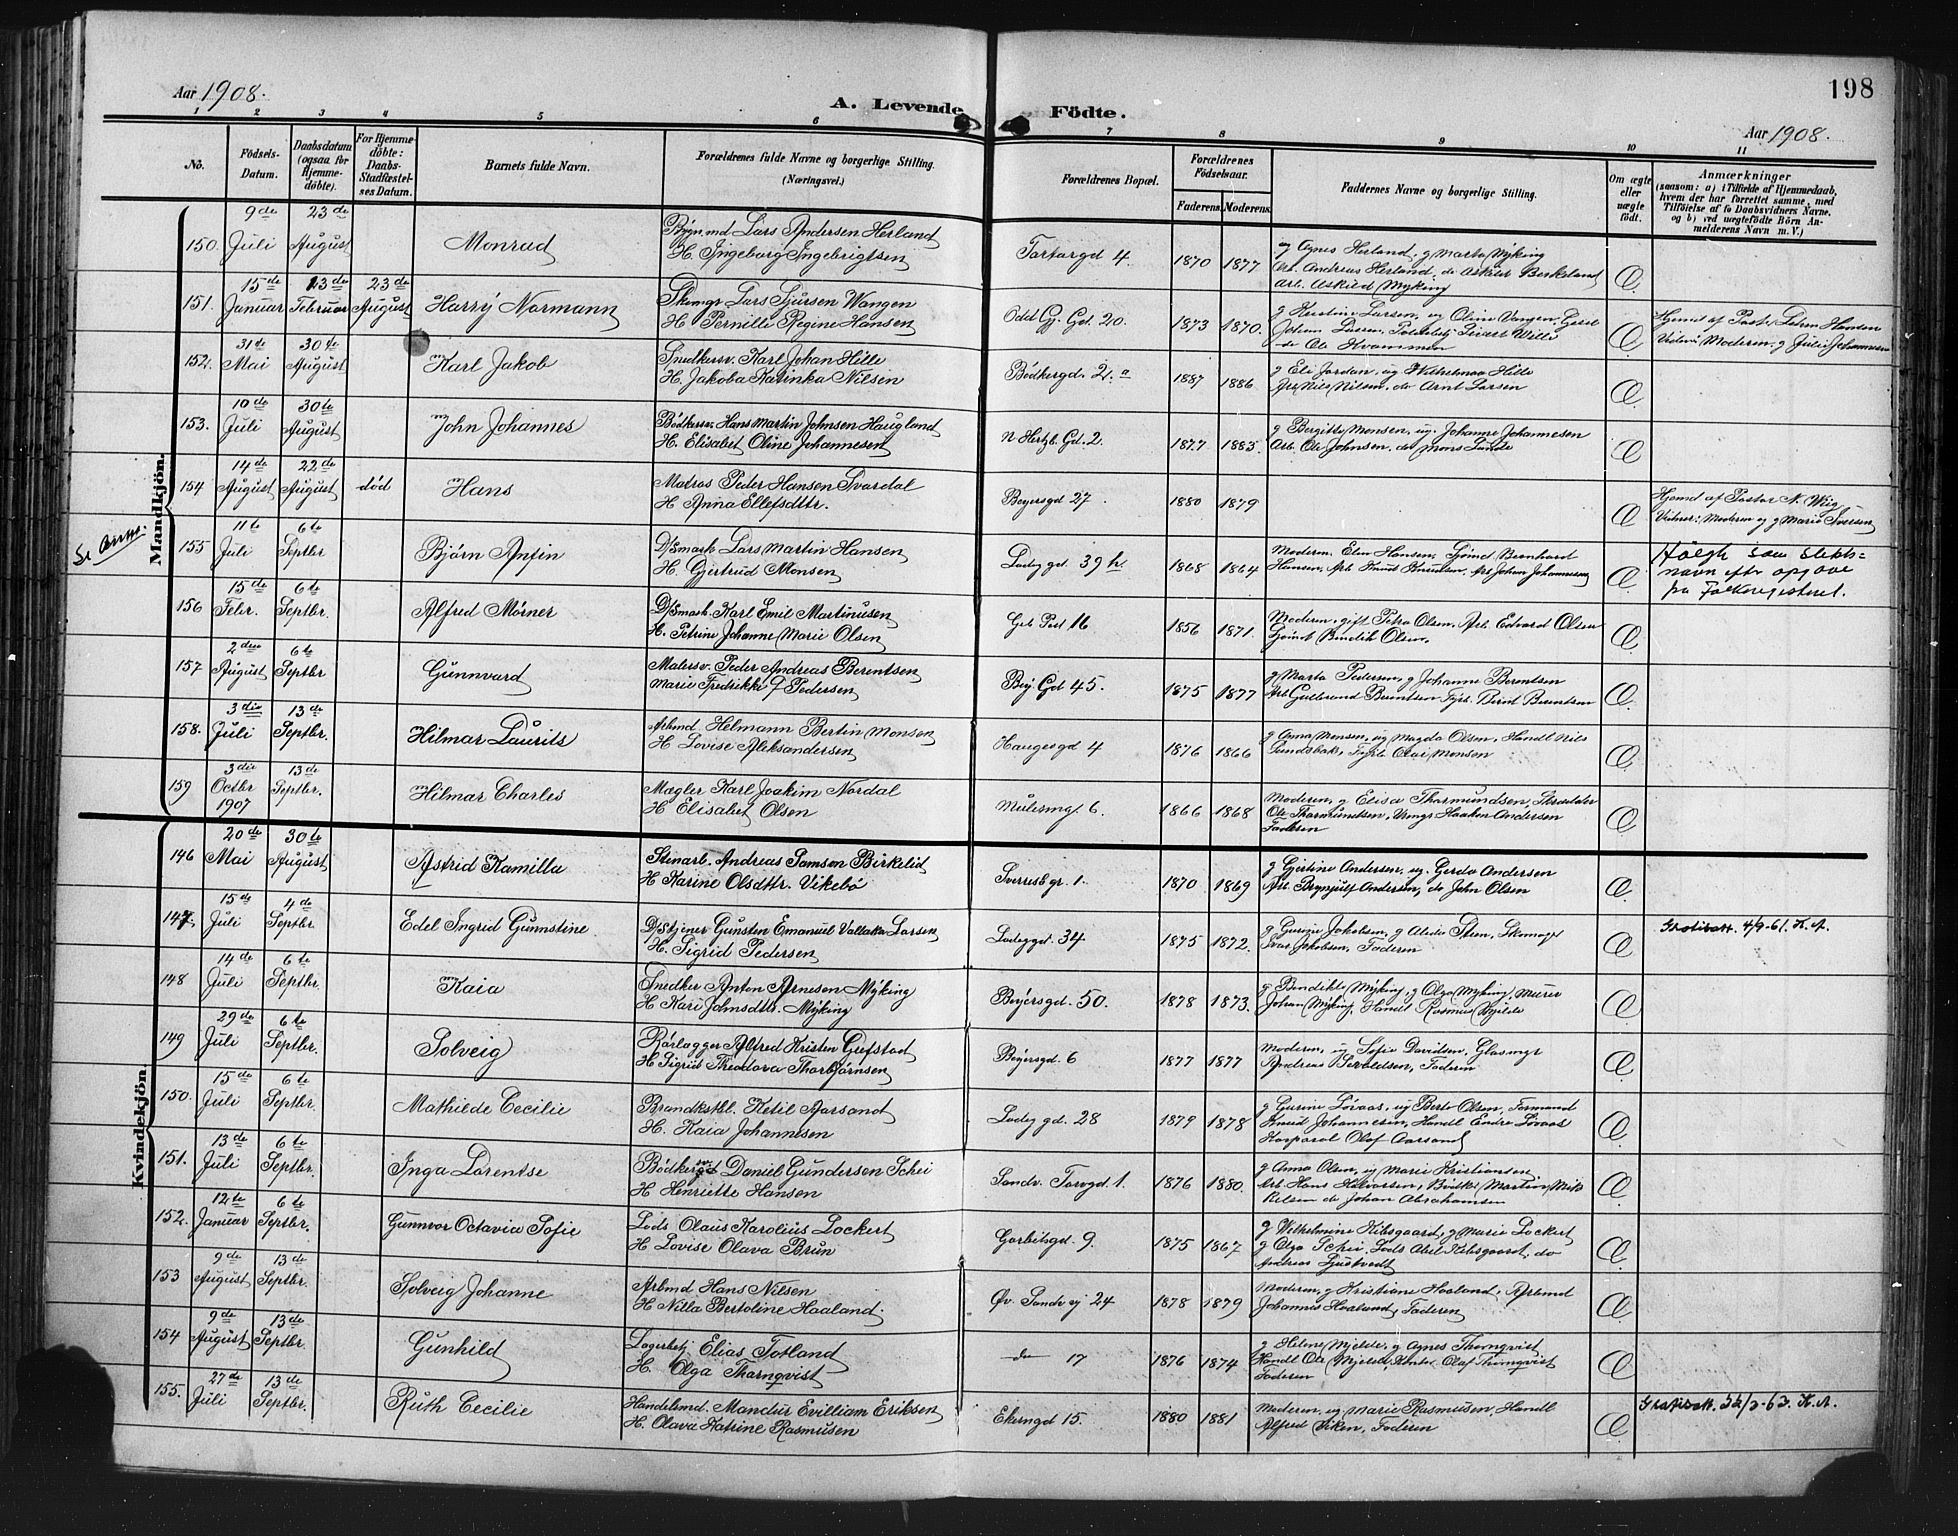 198
Aar 1908.
A. Levende Födte.
Aar 1908.
1 2 3 4 5 6 7 8 9 10 11
No.
Födsels-Datum.
Daabsdatum (ogsaa for Hjemmedöbte).
For Hjemmedöbte: Daabs-Stadfæstelses Datum.
Barnets fulde Navn.
Forældrenes fulde Navne og borgerlige Stilling. (Næringsvei.)
Forældrenes Bopæl.
Forældrenes Födselsaar.
Faderens. Moderens.
Faddernes Navne og borgerlige Stilling.
Om ægte eller uægte födt.
Anmærkninger
(saasom: a) i Tilfælde af Hjemmedaab, hvem der har forrettet samme, med Tilföielse af to Daabsvidners Navne, og b) ved uægtefödte Börn Anmelderens Navn m. V.)
Mandkjön.
150. 9de Juli 23de August Monrad Lars Andersen Herland
H. Ingeborg Ingebrigtsen 4 1870 1877 ug Agnes Herland, g Marta Myking
Arb. Andreas Herland, do Berkeland
Arb. Askild Myking Æ
151. 15de Januar 23de Februar 23de August Harry Normann Lars Sjursen Wangen
H Pernille Regine Hansen Odd Gj. Gd. 20 1873 1870 g Kirstine Larsen, ug Oline Vangen
Johan
do Ole Hvammen Æ Hjemd af Hansen
Moderen, g Julie Johannesen
152. 31de Mai 30te August Karl Jakob Snedkersv. Karl Johan Hille
H. Jakoba Katinka Nilsen Bödkergd. 2 a 1887 1886 g Eli Jordan, ug Wilhelmine Hille
Nils Nilsen, do Arnt Larsen Æ
153. 10de Juli 30te August John Johannes Bödkersv. Hans Martin Johnsen Haugland
H. Elisabet Oline Johannesen N Gd. 2. 1877 1883 g Bergitte Monsen, ug. Johanne Johannesen
Arb. Ole Johnsen, do Mons Sunde Æ
154 14de August 22de August död Hans Matros Peder Hansen Svardal
H Anna Ellefsdttr. Beyersgd 27 1880 1879 Æ Hjemd af Pastor N. Wiig
Vidner: Moderen og g Marie Iversen
Se
155 11te Juli 6te Septbr Björn Antin D/Smask. Lars Martin Hansen
H. Gjertrud Monsen Ladeg gd 39 1868 1864 Moderen, Elen Hansen, Bernhard
Hansen, Arb Knud Knudsen, Arb Johan Johannesen Æ som slekts=
navn efter opgave
på Folkeregisteret.
156 15de Febr. 6te Septbr. Alfred Mörner D/Smask. Karl Emil Martinusen
H. Petrine Johanne Marie Olsen 16 1856 1871. Moderen, gift Petra Olsen, Arb Edvard Olsen
Bendik Olsen. Æ
157 2den August 6te Septbr Gunnvard Malersv. Peder Andreas Berentsen
Marie Fredrikke Pedersen Bey. Gd 45. 1875 1877 g Marta Pedersen, g Johanne Berentsen
Arb Gulbrand Berentsen, Bernt Berentsen Æ
158. 3die Juli 13de Septbr. Hilmar Laurits Arbmd Helmann Bertin Monsen
H Lovise Aleksandersen Haugesgd 4 1876 1866 g Anna Monsen, ug Magda Olsen, Handl Nils
Olai Monsen Æ
159 3die Octbr 1907 13de Septbr. Hilmar Charles Mægler Karl Joakim Nordal
H Elisabet Olsen 6. 1866 1868 Moderen, g Elisa Thormundsen, Skrædder
Ole Thormundsen, Haaken Andersen
Faderen Æ
Kvindekjön.
146 20de Mai 30te August Astrid Kamilla Stenarb. Andreas Samson Birkelid
H Karine Olsdttr. Vikebö 1. 1870 1869 g Gjertine Andersen, ug. Gerda Andersen
Arb. Brynjulf Andersen, do John Olsen Æ
147. 15de Juli 4de Septbr. Edel Ingrid Gunnstine Gunsten Emanuel Larsen
H. Sigrid Pedersen Ladeggd. 34 1875 1872. g Gurine Jakobsen, g Alida Steen, Skomager
Jakobsen, Faderen Æ 4/9-61. K.A.
148 14de Juli 6te Septbr. Kaia Snedker Anton Arnesen Myking
H. Kari Johnsdttr. Myking Beyersgd. 50. 1878 1873. g Bendikte Myking, g Olga Myking, Murer
Johan Myking, Handl Rasmus Mjelde Æ
149 29de Juli 6te Septbr. Solveig Rörlægger Alfred Kristen Gefstad
H Sigrid Theodora Thorbjörnsen Beyersgd. 6 1877 1877 Moderen, ug Sofie Davidsen, Glasmgr
Andreas Faderen Æ
150. 15de Juli 6te Septbr. Mathilde Cecilie Brandkstbl. Ketil Aarsand
H. Kaia Johannesen Ladeg gd. 28 1879 1878 g Gurine Löraas, ug Berta Olsen, Formand
Knud Johannesen, Handl Endre Löraas
Korporal Olaf Aarsand Æ
151. 13de Juli 6te Septbr. Inga Lorentse Bödker Daniel Gundersen Schei
H Henriette Hansen Sandv. Torvgd. 1. 1876 1880. g Anna Olsen, ug Marie Kristiansen
Arb Hans Halvorsen, Bödker Martin Mik
kelsen do Johan Abrahamsen Æ
152. 12te Januar 6te Septbr. Gunnvor Octavia Sofie Lods Olaus Karolius Lockert
H Lovise Olava Brun 9. 1875 1867 g Welhelmine Kibsgaard, g Marie Lockert
g Olga Schei, Lods Abel Kibsgaard, do
Andreas Æ
153 9de August 13de Septbr. Solveig Johanne Arbmd Hans Nilsen
H Nilla Bertoline Haaland. Öv. Sandv ej 24 1878 1879 Moderen, g Kristiane Haaland, Arbmd
Johannes Haaland, Faderen Æ
154 9de August 13de Septbr. Gunhild Lagerbetj Elias Totland
H. Olga Thornqvist do 17 1876 1874 g Helene Mjelde, g Agnes Thornqvist
Handl Ole Mjelde, Olaf Thornqvist
Faderen Æ
155. 27de Juli 13de Septbr. Ruth Cecilie Handelsmd. Mandur Evilliam Eriksen
H. Olava Katrine Rasmusen Ekerngd 15. 1880 1881 Moderen, ug Marie Rasmusen, Handl
Alfred Viken, Faderen Æ K.A.